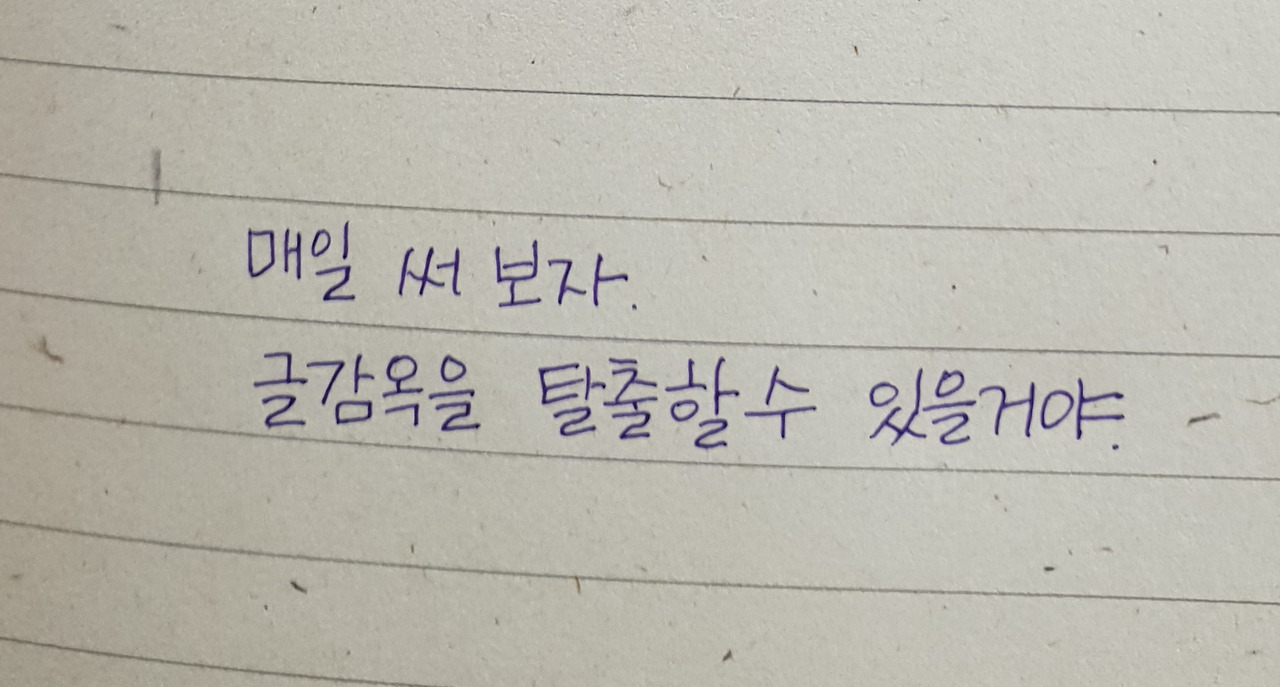 매일 써 보자.
글감옥을 탈출할 수 있을거야.